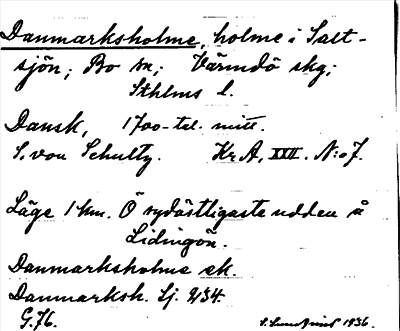 Danmarksholme, holme i Salt-
sjön; Bo sn; Värmdö skg;
Sthlms l.
Dansk, 1700-tal. mitt.
S. von Schultz. Kr A, XXII. N:o 7.
Läge 1 km. Ö sydöstligaste udden å
Lidingön.
Danmarksholme ek.
Danmarksh. Sj. 434
G. 76. 1936